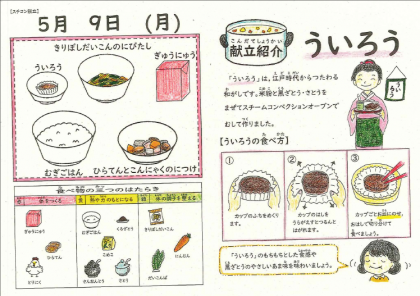 [スチコン献立]
5月 9日 (月)
きりぼしだいこんのにびたし
ういろう
ぎゅうにゅう
むぎごはん
ひらてんとこんにゃくのにつけ
食べ物の三つのはたらき
体をつくる
熱や力のもとになる
体の調子を整える
ぎゅうにゅう
むぎごはん
くろざとう
ひらてん
こめこ
にんじん
さとう
だいこんば
こんだてしょうかい
献立紹介
ういろう
「ういろう」は、江戸時代からつたわる
和がしです。米粉と黒ざとう・さとうを
まぜてスチームコンベクションオーブンで
むして作りました。
【ういろうの食べ方】
①
カップのふちをめくり
ます。
②
カップのはしを
うらがえすとつるんと
はがれます。
③
カップごとお皿にのせ、
おはしで切り分けて
食べましょう。
「ういろう」のもちもちとした食感や
黒ざとうのやさしいあま味を味わいましょう。